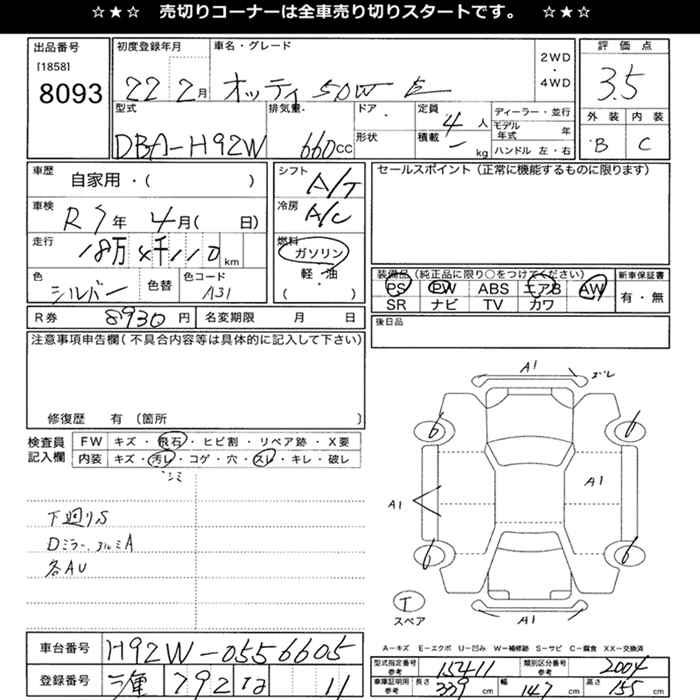 ☆★☆ 売切りコーナーは全車売り切りスタートです。 ☆★☆
出品番号
[1858]
8093
初度登録年月
22 2月
車名・グレード
オッティ 50W
2WD
・
4WD
評価点
3.5
外装 内装
B C
型式
DBA-H92W
排気量.
660CC
ドア・
形状
定員 4人
積載 - kg
ディーラー・並行
モデル年式 年
ハンドル 左・右
車歴
自家用・( )
車検
R7年 4月( 日)
走行
18万4千110km
色
シルバー
色替
色コード
A31
シフト
A/T
冷房
A/C
燃料
ガソリン
軽・油
( )
セールスポイント(正常に機能するものに限ります)
装備品(純正品に限り○をつけてください)
PS PW ABS エアB AW
SR ナビ TV カワ
新車保証書
有・無
R券 8930円
名変期限 月 日
後日品
注意事項申告欄(不具合内容等は具体的に記入して下さい)
修復歴 有 (箇所 )
検査員
記入欄
FW キズ・飛石・ヒビ割・リペア跡・X要
内装 キズ・汚レ・コゲ・穴・スレ・キレ・破レ
シミ
下廻りS
Dミラー、アルミA
各AU
A1
A1
A1
A1
6
6
6
6
T
スペア
A=キズ E=エクボ U=凹み W=補修跡 S=サビ C=腐食 XX=交換済
車台番号 H92W-0556605
登録番号
792 11
型式指定番号
参考
15411
類別区分番号
参考
2004
車庫証明用
参考
長さ 339cm 幅 147cm 高さ 155cm